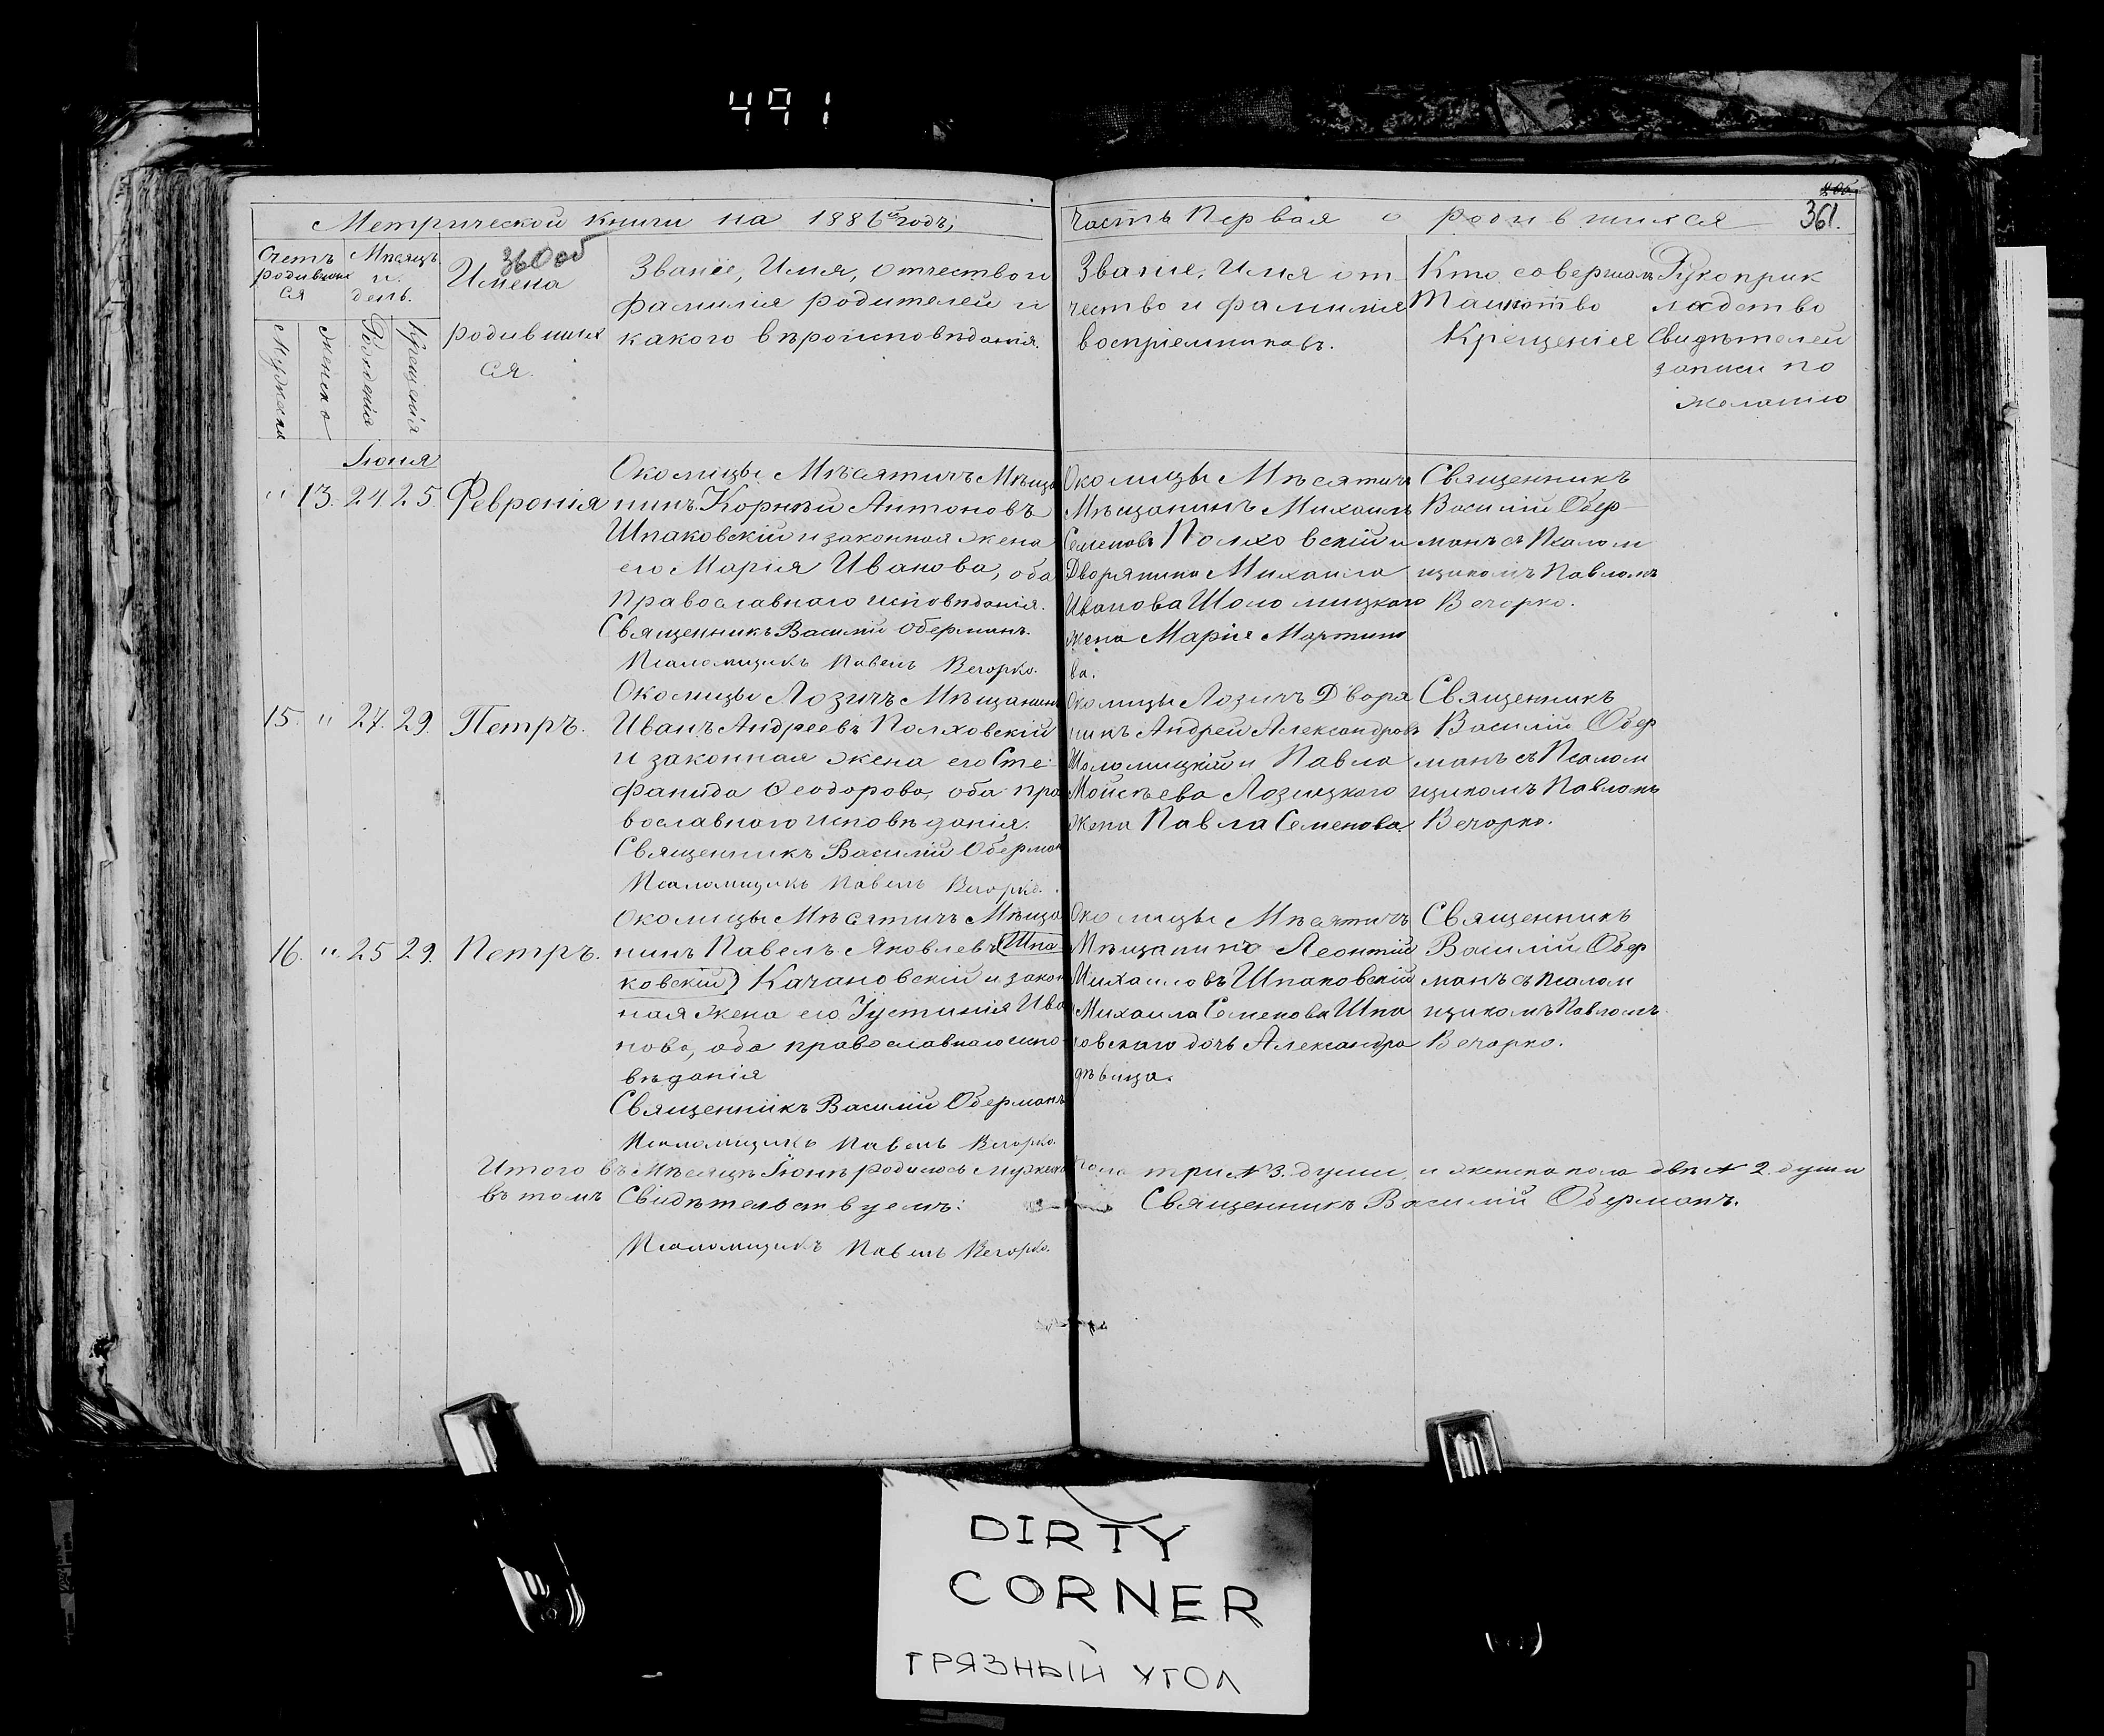 491
Метрической книги на 1886й годъ,
Счетъ родившихся
Мѣсяцъ и день.
Мужеска
Женска
Рожденія
Крещенія
360об
Имена
родивших
ся.
Званіе, Имя, отчество и
фамилія родителей и
какого вѣроисповѣданія.
Часть Первая о родившихся
361.
Званіе, Имя от-
чество и фамилія
воспріемниковъ.
Кто совершалъ
Таинство
Крещенія
Рукоприк
ладство
Свидѣтелей
записи по
желанію
Іюня
" 13. 24. 25. Февронія
Околицы Мѣсятичъ Мѣща
нинъ Корнѣй Антоновъ
Шпаковскій и законная жена
его Марія Иванова, оба
Православнаго исповѣданія.
Священникъ Василій Оберманъ.
Псаломщикъ Павелъ Вечорко.
Околицы Мѣсятичъ
Мѣщанинъ Михаилъ
Семеновъ Полховскій и
Дворянина Михаила
Иванова Шоломицкаго
жена Марія Мартино
ва.
Священникъ
Василій Обер
манъ съ Псалом
щикомъ Павломъ
Вечорко.
15. " 27. 29. Петръ.
Околицы Лозичъ Мѣщанинъ
Иванъ Андреевъ Полховскій
и законная жена его Сте-
фанида Ѳеодорова, оба пра
вославнаго исповѣданія.
Священникъ Василій Оберман
Псаломщикъ Павелъ Вечорко.
Околицы Лозичъ Дворя
нинъ Андрей Александровъ
Шоломицкій и Павла
Моисѣева Лозицкаго
жена Павла Семенова
Священникъ
Василій Обер
манъ съ Псалом
щикомъ Павломъ
Вечорко.
16. " 25 29. Петръ.
Околицы Мѣсятичъ Мѣща
нинъ Павелъ Яковлевъ (Шпа
ковскій) Качановскій и закон
ная жена его Іустинія Ива
нова, оба православнаго испо-
вѣданія
Священникъ Василій Оберманъ
Псаломщикъ Павелъ Вечорко.
Околицы Мѣсятичъ
Мѣщанинъ Леонтій
Михаиловъ Шпаковскій
Михаила Семенова Шпа
ковскаго дочь Александра
дѣвица.
Священникъ
Василій Обер
манъ съ Псалом
щикомъ Павломъ
Вечорко.
Итого въ Мѣсяцѣ Іюнѣ родилось мужеска пола три № 3. души, и женска пола двѣ № 2. души
въ томъ Свидѣтельствуемъ: Священникъ Василій Оберманъ.
Псаломщикъ Павелъ Вечорко.
DIRTY
CORNER
ГРЯЗНЫЙ УГОЛ